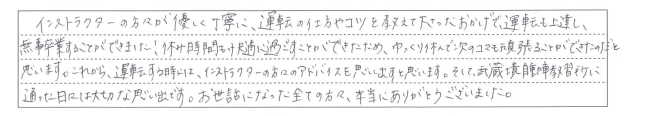 インストラクターの方々が優しく丁寧に、運転の仕方やコツを教えて下さったおかげで、運転も上達し、
無事卒業することができました！休み時間も快適に過ごすことができたため、ゆっくり休んで次のコマも頑張ることができたのだと
思います。これから、運転する時には、インストラクターの方々のアドバイスを思い出すと思います。そして、武蔵境自動車教習所に
通った日々は大切な思い出です。お世話になった全ての方々、本当にありがとうございました。